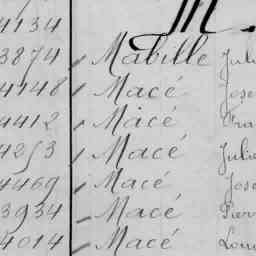 4134 M.
3874 Mabille Juli
4148 Macé Jose
4412 Macé Fra
4253 Macé Julie
4469 Macé Jose
3934 Macé Pierr
4014 Macé Loui